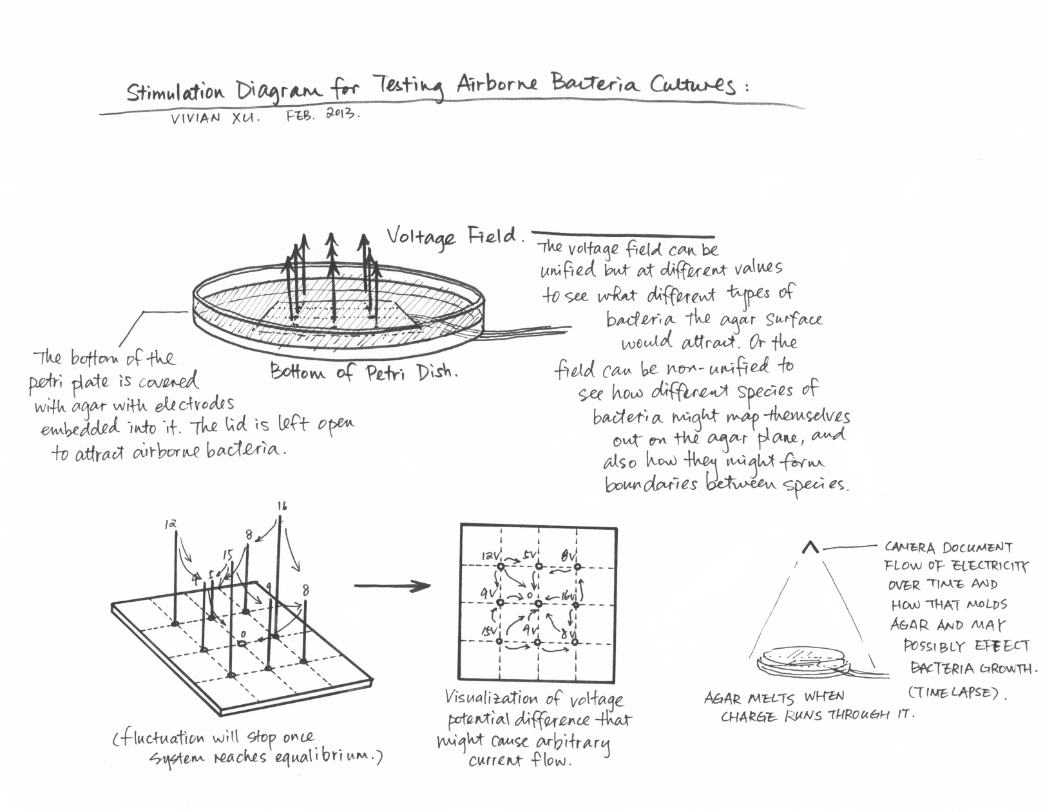 Stimulation Diagram for Testing Airborne Bacteria Cultures:
VIVIAN XU. FEB. 2013.
Voltage Field.
The voltage field can be
unified but at different values
to see what different types of
bacteria the agar surface
would attract. Or the
field can be non-unified to
see how different species of
bacteria might map themselves
out on the agar plane, and
also how they might form
boundaries between species.
The bottom of the
petri plate is covered
with agar with electrodes
embedded into it. The lid is left open
to attract airborne bacteria.
Bottom of Petri Dish.
16
12
8
15
9 5
9 8
0
(fluctuation will stop once
system reaches equilibrium.)
12V 5V 8V
9V 0 16V
15V 9V 8V
Visualization of voltage
potential difference that
might cause arbitrary
current flow.
CAMERA DOCUMENT
FLOW OF ELECTRICITY
OVER TIME AND
HOW THAT MOLDS
AGAR AND MAY
POSSIBLY EFFECT
BACTERIA GROWTH.
(TIME LAPSE).
AGAR MELTS WHEN
CHARGE RUNS THROUGH IT.